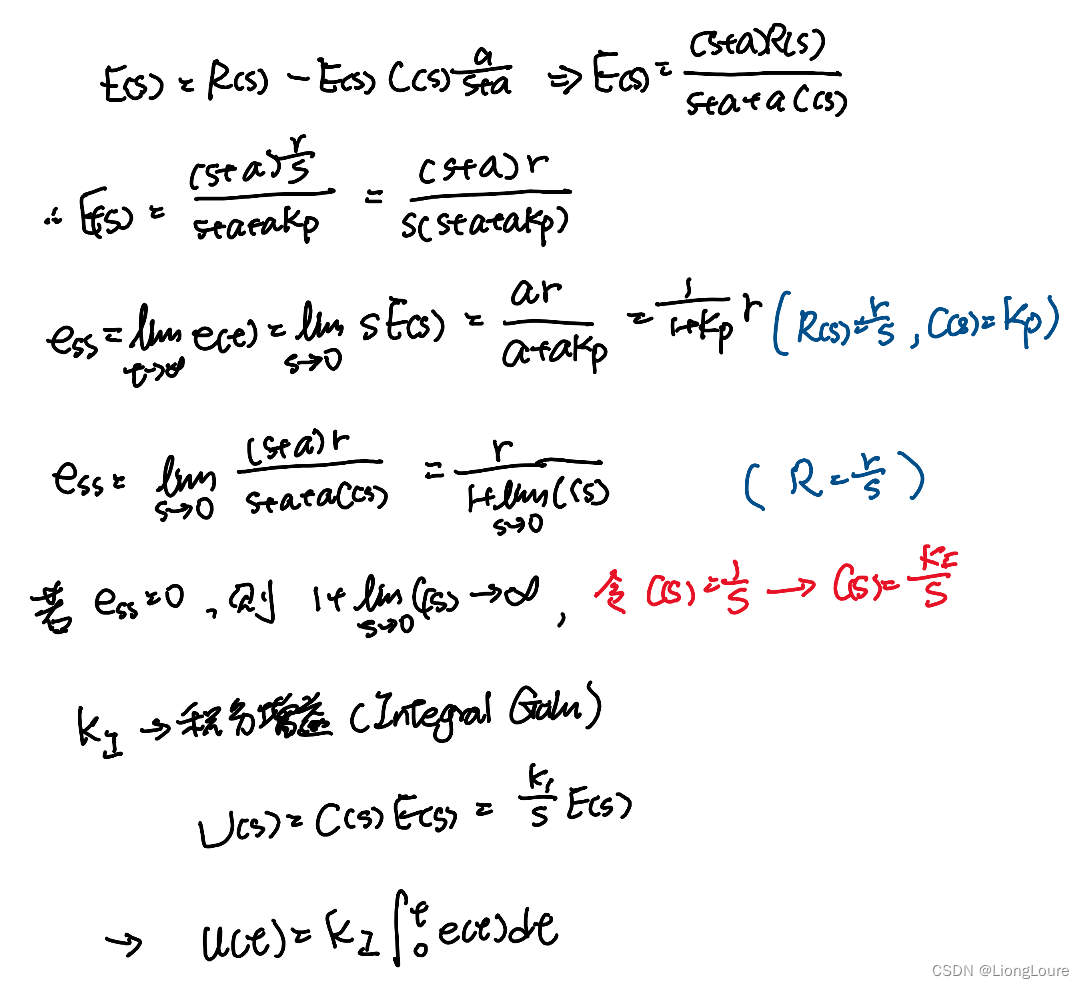 E(s) = R(s) - E(s) C(s) \frac{a}{s+a} ⇒ E(s) = \frac{(s+a)R(s)}{s+a+aC(s)}
∴ E(s) = \frac{(s+a)\frac{r}{s}}{s+a+aKp} = \frac{(s+a)r}{s(s+a+aKp)}
e_{ss} = \lim_{t→∞} e(t) = \lim_{s→0} sE(s) = \frac{ar}{a+aKp} = \frac{1}{1+Kp} r (R(s)=\frac{r}{s}, C(s)=Kp)
e_{ss} = \lim_{s→0} \frac{(s+a)r}{s+a+aC(s)} = \frac{r}{1+\lim_{s→0} C(s)} (R=\frac{r}{s})
若 e_{ss}=0, 则 1+\lim_{s→0} C(s) → ∞, 令 C(s)=\frac{1}{s} → C(s)=\frac{K_I}{s}
K_I → 积分增益 (Integral Gain)
U(s) = C(s) E(s) = \frac{K_I}{s} E(s)
→ u(t) = K_I ∫_0^t e(t)dt
CSDN @LiongLoure